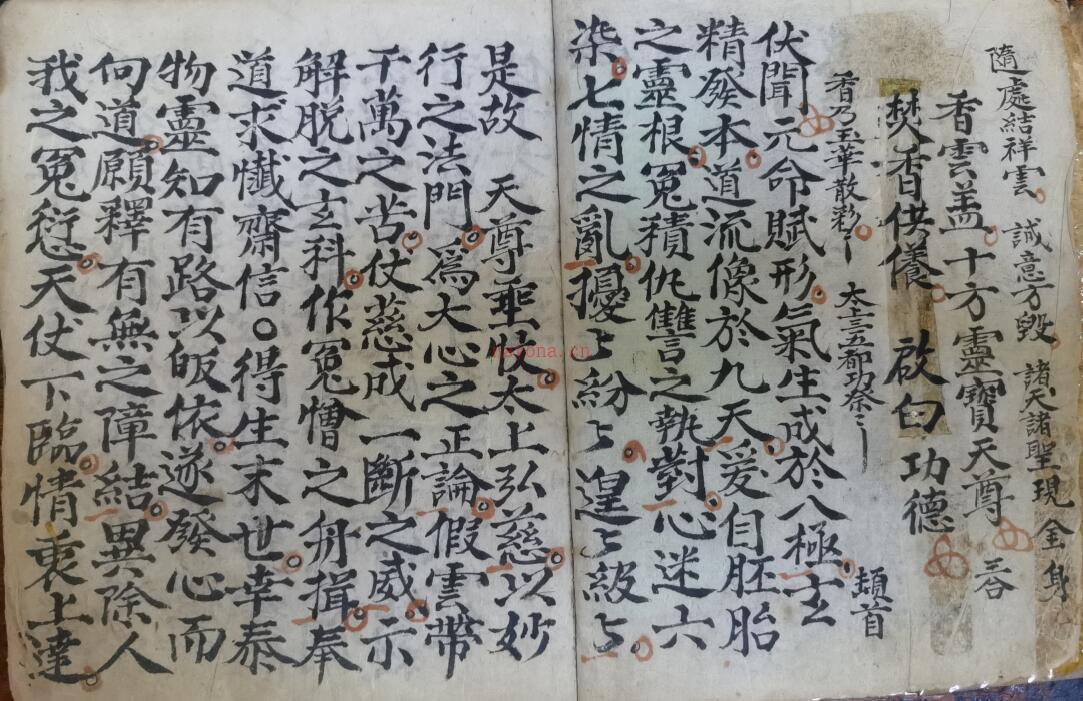 隨處結祥雲。誠意方毀。諸天諸聖現金身
香雲盖。十方靈寶天尊 三吞
焚香供養。啟白功德
香乃玉華散彩。太上三五都功叅 頫首
伏聞元命賦形。氣生成於八極。玄
精發本。道流像於九天。爰自胚胎
之靈根。冤積仇讐之執對。心迷六
染。七情之亂。擾〻紛〻。遑〻級〻。
是故 天尊垂憫。太上弘慈。以妙
行之法門。爲大心之正論。假雲帶
千萬之苦。仗慈成一斷之威。示
解脱之玄科。作冤憎之舟揖。奉
道求懺齋信〇得生末世。幸泰
物靈知有路以皈依。遂發心而
向道。願釋有無之障結。異除人
我之冤愆。天仗下臨。情衷上達。
nayona.cn